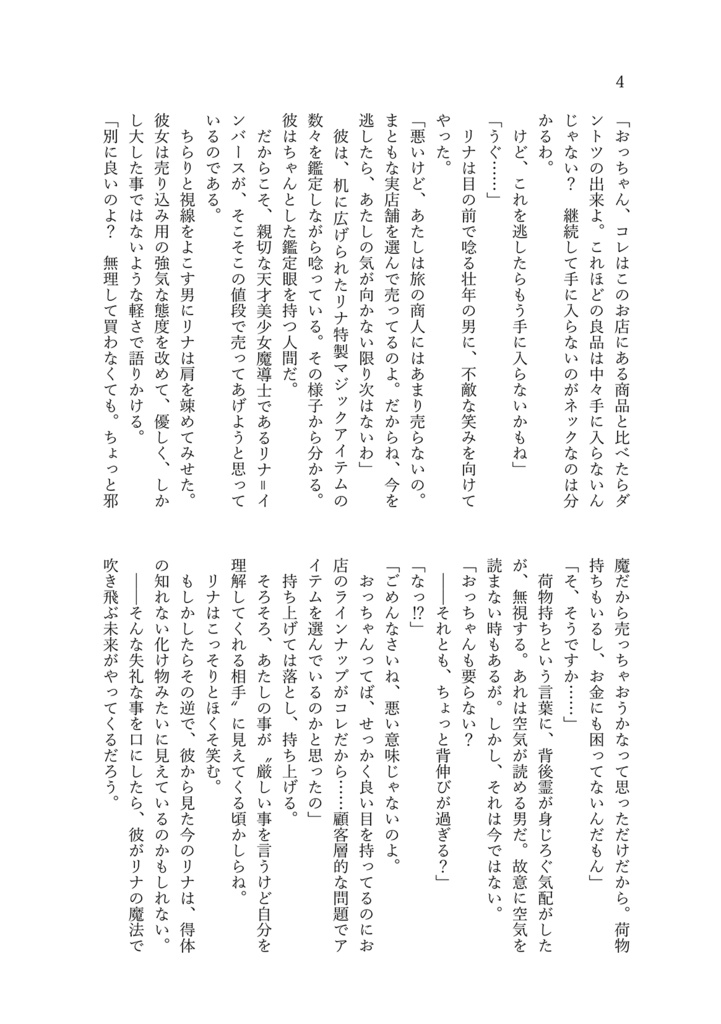 4
「おっちゃん、コレはこのお店にある商品と比べたらダ
ントツの出来よ。これほどの良品は中々手に入らないん
じゃない？　継続して手に入らないのがネックなのは分
かるわ。
　けど、これを逃したらもう手に入らないかもね」
「うぐ……」
　リナは目の前で唸る壮年の男に、不敵な笑みを向けて
やった。
「悪いけど、あたしは旅の商人にはあまり売らないの。
まともな実店舗を選んで売ってるのよ。だからね、今を
逃したら、あたしの気が向かない限り次はないわ」
　彼は、机に広げられたリナ特製マジックアイテムの
数々を鑑定しながら唸っている。その様子から分かる。
彼はちゃんとした鑑定眼を持つ人間だ。
　だからこそ、親切な天才美少女魔導士であるリナ＝イ
ンバースが、そこそこの値段で売ってあげようと思って
いるのである。
　ちらりと視線をよこす男にリナは肩を竦めてみせた。
彼女は売り込み用の強気な態度を改めて、優しく、しか
し大した事ではないような軽さで語りかける。
「別に良いのよ？　無理して買わなくても。ちょっと邪
魔だから売っちゃおうかなって思っただけだから。荷物
持ちもいるし、お金にも困ってないんだもん」
「そ、そうですか……」
　荷物持ちという言葉に、背後霊が身じろぐ気配がした
が、無視する。あれは空気が読める男だ。故意に空気を
読まない時もあるが。しかし、それは今ではない。
「おっちゃんも要らない？
　――それとも、ちょっと背伸びが過ぎる？」
「なっ⁉」
「ごめんなさいね、悪い意味じゃないのよ。
　おっちゃんってば、せっかく良い目を持ってるのにお
店のラインナップがコレだから……顧客層的な問題でア
イテムを選んでいるのかと思ったの」
　持ち上げては落とし、持ち上げる。
　そろそろ、あたしの事が〝厳しい事を言うけど自分を
理解してくれる相手〟に見えてくる頃かしらね。
　リナはこっそりとほくそ笑む。
　もしかしたらその逆で、彼から見た今のリナは、得体
の知れない化け物みたいに見えているのかもしれない。
　――そんな失礼な事を口にしたら、彼がリナの魔法で
吹き飛ぶ未来がやってくるだろう。